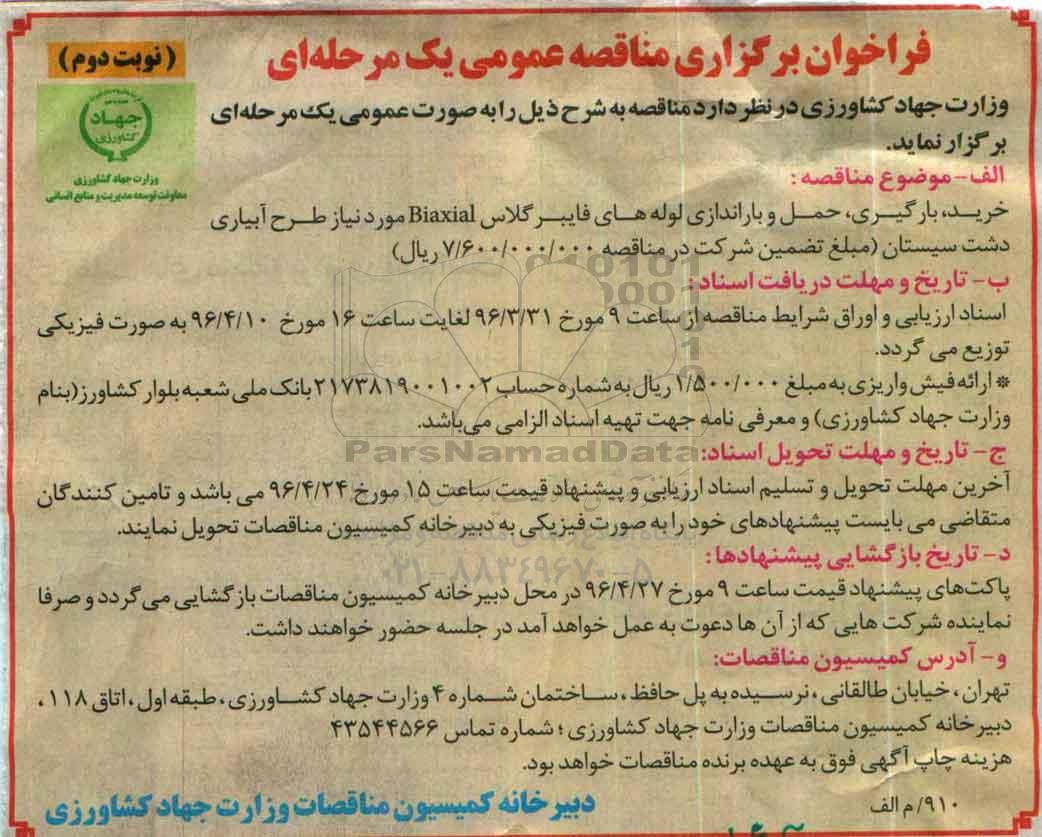 فراخوان برگزاری مناقصه عمومی یک مرحله‌ای
(نوبت دوم)
جهاد
کشاورزی
وزارت جهاد کشاورزی
معاونت توسعه مدیریت و منابع انسانی
وزارت جهاد کشاورزی در نظر دارد مناقصه به شرح ذیل را به صورت عمومی یک مرحله‌ای
برگزار نماید.
الف- موضوع مناقصه:
خرید، بارگیری، حمل و باراندازی لوله های فایبرگلاس Biaxial مورد نیاز طرح آبیاری
دشت سیستان (مبلغ تضمین شرکت در مناقصه ۷/۶۰۰/۰۰۰/۰۰۰ ریال)
ب- تاریخ و مهلت دریافت اسناد:
اسناد ارزیابی و اوراق شرایط مناقصه از ساعت ۹ مورخ ۹۶/۳/۳۱ لغایت ساعت ۱۶ مورخ ۹۶/۴/۱۰ به صورت فیزیکی
توزیع می گردد.
* ارائه فیش واریزی به مبلغ ۱/۵۰۰/۰۰۰ ریال به شماره حساب ۲۱۷۳۸۱۹۰۰۱۰۰۲ بانک ملی شعبه بلوار کشاورز(بنام
وزارت جهاد کشاورزی) و معرفی نامه جهت تهیه اسناد الزامی می‌باشد.
ج- تاریخ و مهلت تحویل اسناد:
ParsNamadData
آخرین مهلت تحویل و تسلیم اسناد ارزیابی و پیشنهاد قیمت ساعت ۱۵ مورخ ۹۶/۴/۲۴ می باشد و تامین کنندگان
متقاضی می بایست پیشنهادهای خود را به صورت فیزیکی به دبیرخانه کمیسیون مناقصات تحویل نمایند.
د- تاریخ بازگشایی پیشنهادها:
۰۲۱-۸۸۳۴۹۶۷۰-۵
پاکت‌های پیشنهاد قیمت ساعت ۹ مورخ ۹۶/۴/۲۷ در محل دبیرخانه کمیسیون مناقصات بازگشایی می‌گردد و صرفا
نماینده شرکت هایی که از آن ها دعوت به عمل خواهد آمد در جلسه حضور خواهند داشت.
و- آدرس کمیسیون مناقصات:
تهران، خیابان طالقانی، نرسیده به پل حافظ، ساختمان شماره ۴ وزارت جهاد کشاورزی، طبقه اول، اتاق ۱۱۸،
دبیرخانه کمیسیون مناقصات وزارت جهاد کشاورزی؛ شماره تماس ۴۳۵۴۴۵۶۶
هزینه چاپ آگهی فوق به عهده برنده مناقصات خواهد بود.
۹۱۰/م الف
دبیرخانه کمیسیون مناقصات وزارت جهاد کشاورزی